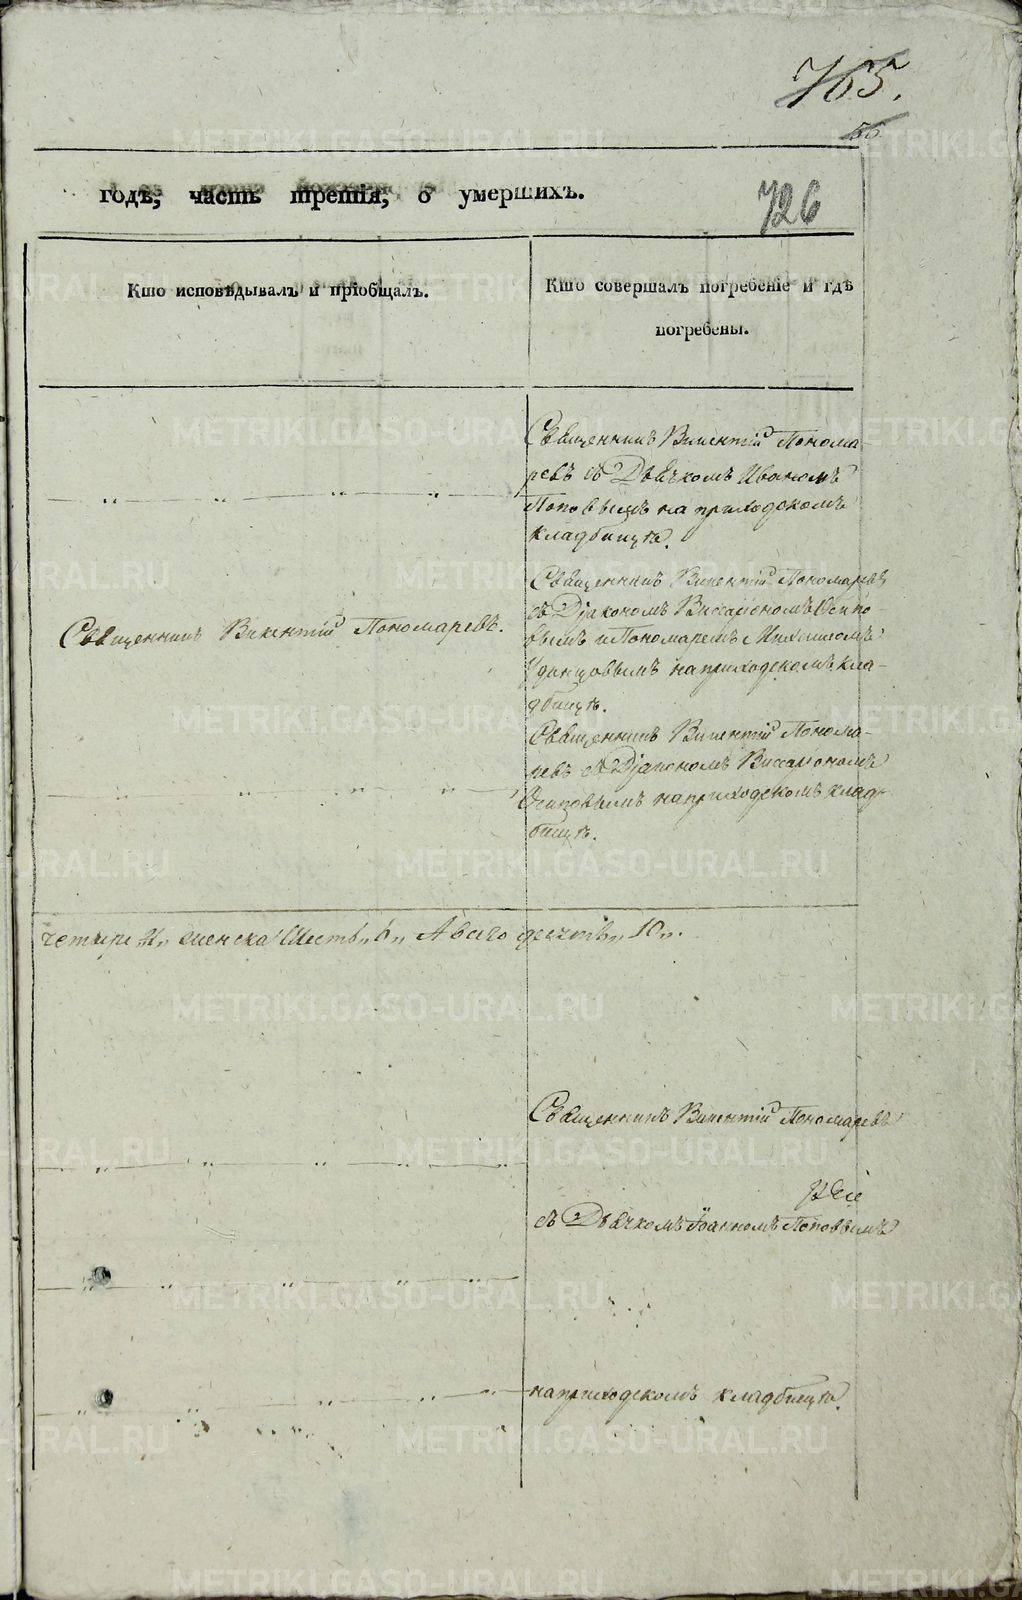 765.
56
726
годъ, часть третія, о умершихъ.
Кто исповѣдывалъ и пріобщалъ.
Кто совершалъ погребеніе и гдѣ
погребены.
Священникъ Викентій Понома-
ревъ съ Дьячкомъ Иваномъ
Поповымъ на приходскомъ
кладбищѣ.
Священникъ Викентій Пономаревъ.
Священникъ Викентій Пономаревъ
съ Діакономъ Виссаріономъ Осипо-
вымъ и Пономаремъ Михаиломъ
Удинцовымъ на приходскомъ кла-
дбищѣ.
Священникъ Викентій Понома-
ревъ съ Діакономъ Виссаріономъ
Осиповымъ на приходскомъ клад-
бищѣ.
четыре 4,, женска Шесть,, 6,, А всего десять,, 10,,.
Священникъ Викентій Пономаревъ
съ Дьячкомъ Іоанномъ Поповымъ
на приходскомъ кладбищѣ.
METRIKI.GASO-URAL.RU